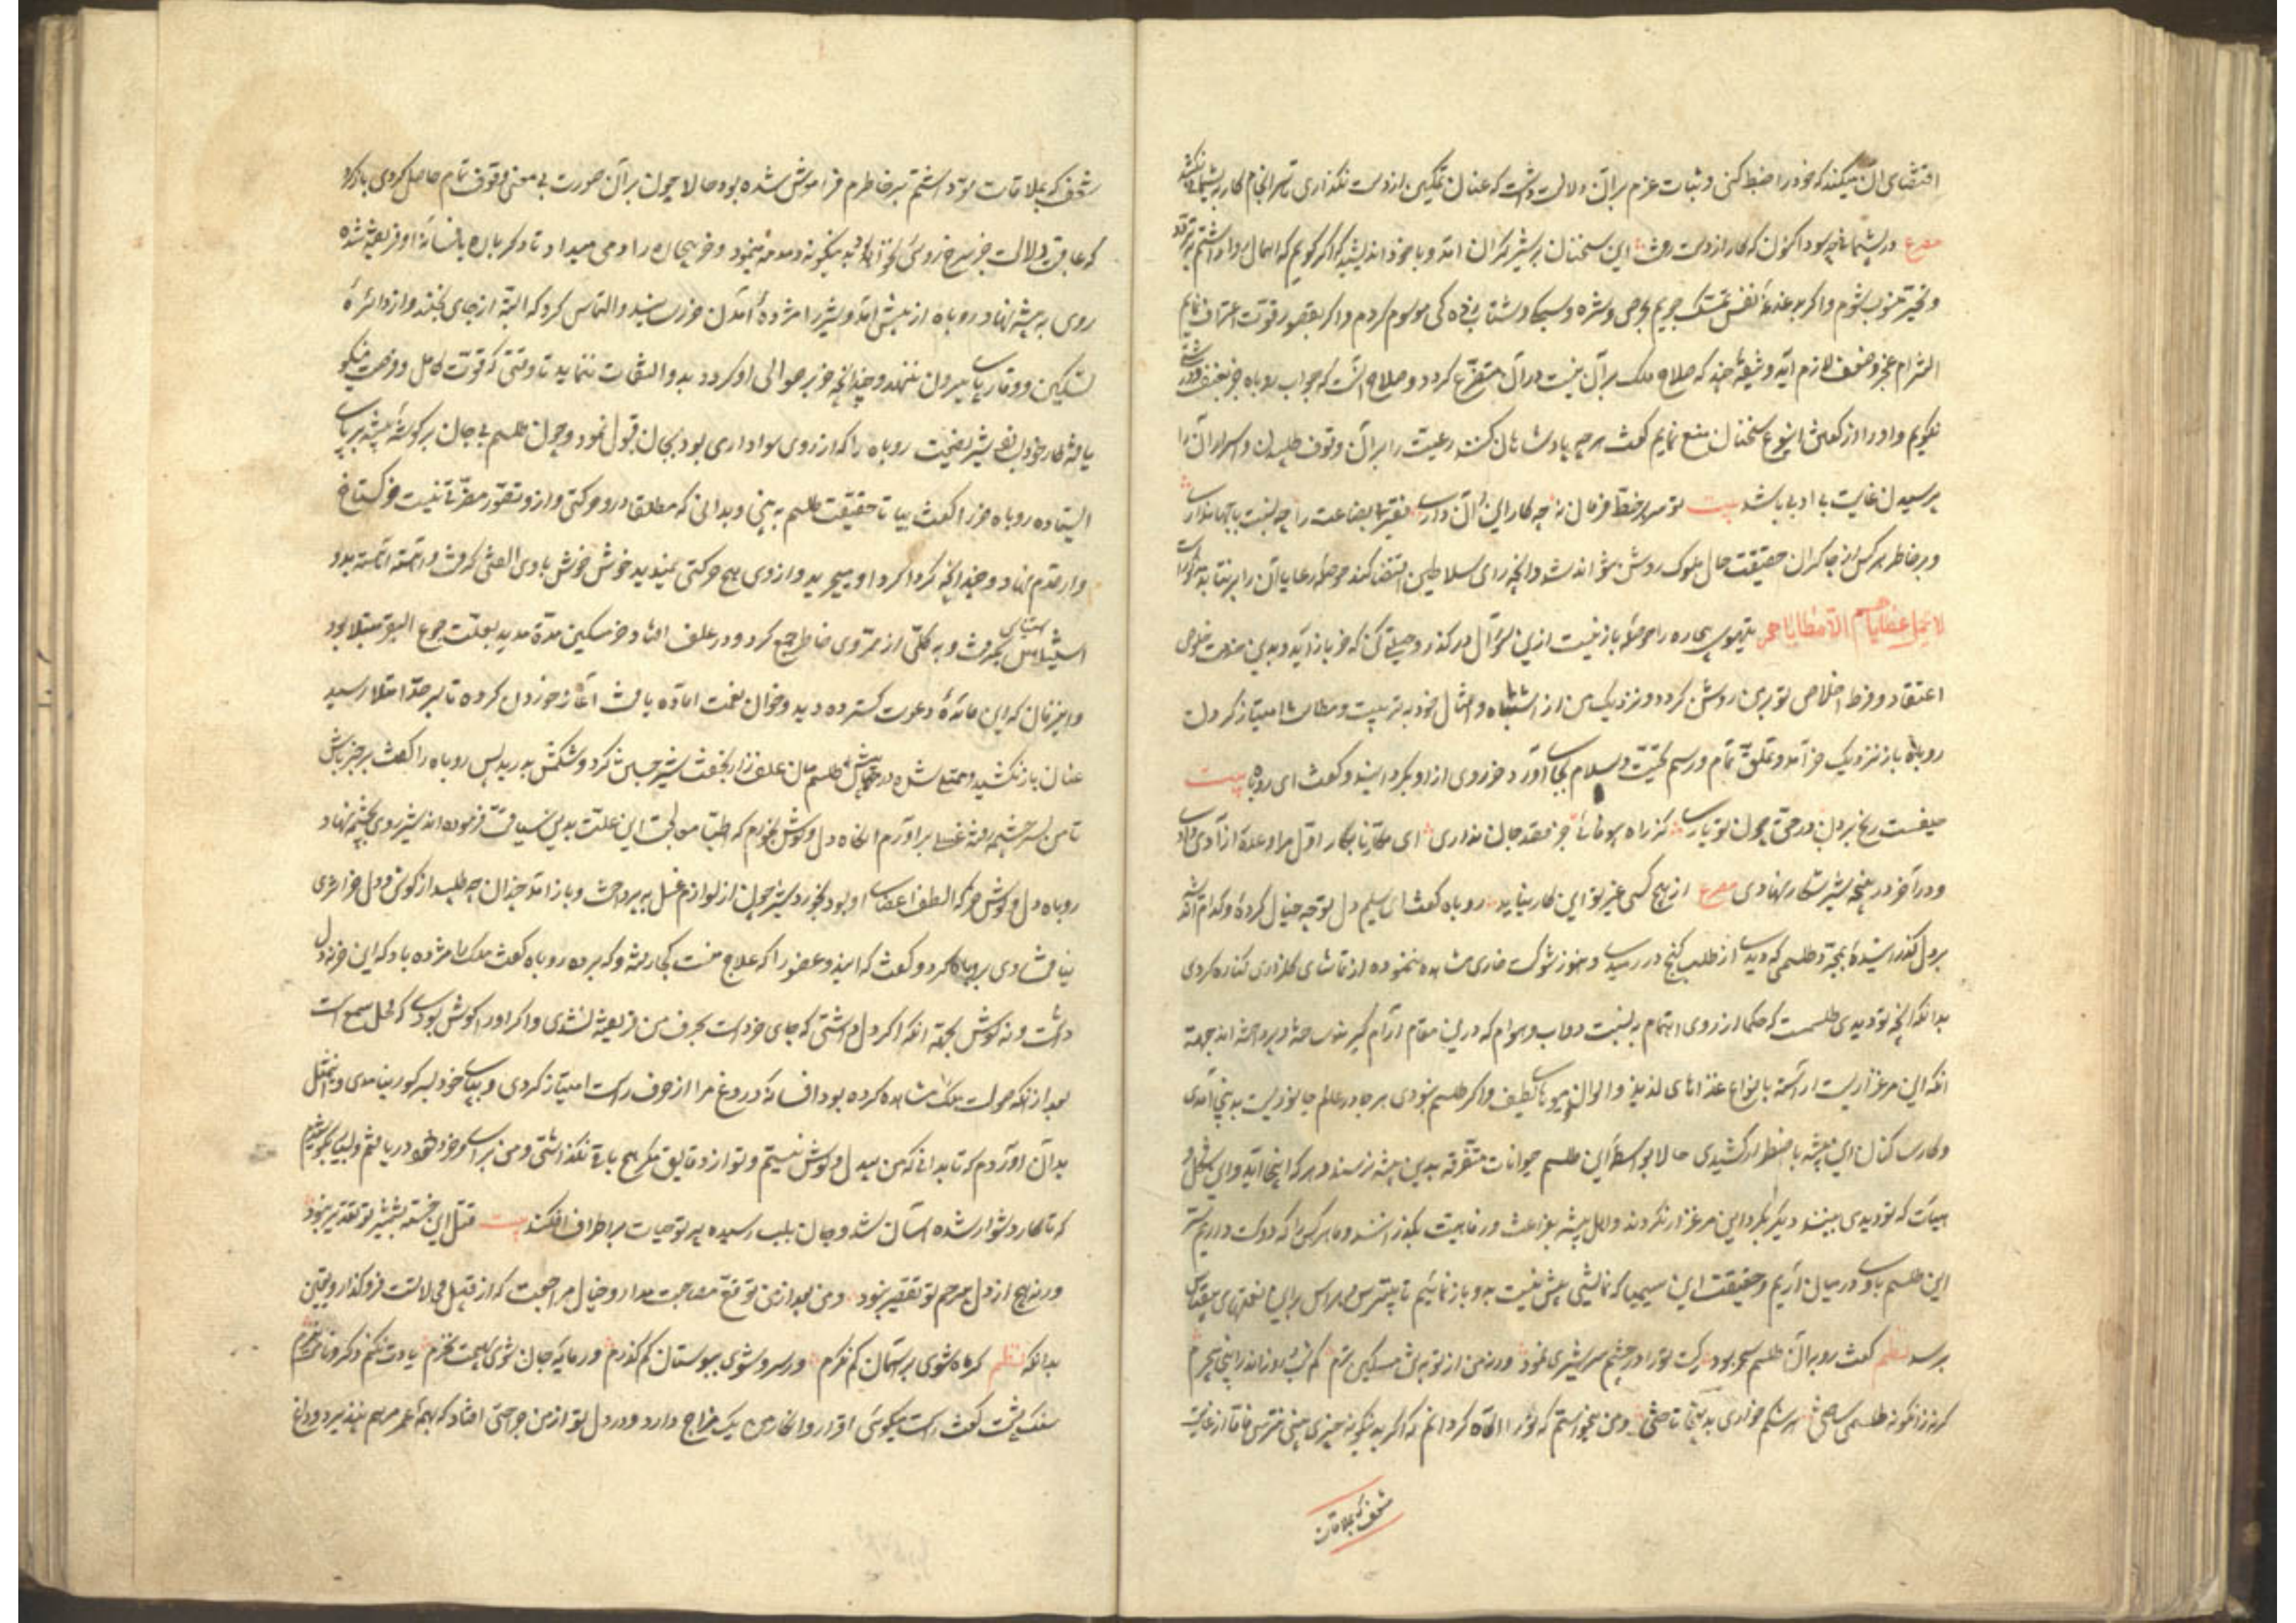 اقتضای آن میکند که خود را ضبط کنی و ثبات عزم بران دلالت داشت که عنان تمکین از دست نگذاری تا سرانجام کار به پشیمانی نکشد
مصرع در پشیمانی چه سود اکنون که کار از دست رفت این سخنان بر شیر گران آمد و با خود اندیشید که اگر گویم که اهمال روا داشتم بتردد
و تحیر منسوب شوم و اگر بدغدغه نفس تمسک جویم بحرص و شره و سبکی و شتاب زدگی موسوم گردم و اگر بقصور قوت اعتراف نمایم
التزام عجز و ضعف لازم آید و شیوه چند که صلاح ملک بر آن نیست در آن متفرع گردد و صلاح آنست که جواب روباه جز بعنف و درشتی
نگویم و او را از گفتن این نوع سخنان منع نمایم گفت هر چه پادشاهان کنند رعیت را بر آن وقوف طلبیدن و اسرار آن را
پرسیدن غایت بی ادبی باشد بیت تو سر بر خط فرمان نه چه کار این و آن داری فقیر بی بضاعت را چه نسبت با جهانداری
و بر خاطر هر کس از چاکران حقیقت حال ملوک روشن نتواند شد و آنچه رای سلاطین اقتضا کند حوصله رعایا آن را برنتابد
لا یحمل عطایاهم الا مطایاهم بیت مور بیچاره را حوصله باز نیست ازین سؤال درگذر و حیلتی کن که خر باز آید و بدین خدمت خلوص
اعتقاد و فرط اخلاص تو بر من روشن گردد و نزدیک من از اشباه و امثال خود به تربیت و عطا ممتاز گردی
روباه باز نزدیک خر آمد و تملق تمام و رسم تحیت و سلام بجای آورد خر روی از او بگردانید و گفت ای روباه بیت
حیفست رنج بردن در حق چون تو یاری کز راه بیوفائی جز قصد جان نداری ای مکار نابکار اول مرا وعده آزادی دادی
و در آخر در پنجه شیر شکار نهادی مصرع از هیچ کسی غیر تو این کار نیاید روباه گفت ای سلیم دل تو چه خیال کرده و کدام اندیشه
بر دل گذرانیده بمجرد طلسمی که دیدی از طلب گنج در رمیدی و هنوز شوکت خاری مشاهده ننموده از تماشای گلزاری کناره کردی
بدانکه آنچه تو دیدی طلسمست که حکما از روی اهتمام به نسبت دواب و هوام که درین مقام آرام گیرند ساخته و پرداخته اند بجهة
آنکه این مرغزاریست آراسته بانواع غذاهای لذیذ و الوان میوهای لطیف و اگر طلسم نبودی هر جا در عالم جانوریست بدینجا آمدی
و کار ساکنان این بیشه باضطرار کشیدی حالا بواسطه این طلسم حیوانات متفرقه بدین بیشه نرسند و هر که اینجا آید و این شکل و
هیأت که تو دیدی ببیند دیگر بگرد این مرغزار نگردد و اهل بیشه بفراغت و رفاهیت بگذرانند و ما هر کس را که دوست داریم سر
این طلسم با وی در میان آریم و حقیقت این سیمیا که نمایشی بیش نیست بدو باز نمائیم تا بی ترس و هراس برین نعمتهای بی قیاس
برسد نظم گفت روبه آن طلسم سحر بود که ترا در چشم سر شیری نمود ورنه من از تو به تن مسکین ترم که شب و روز اندر اینجا میچرم
گر نه زانگونه طلسمی ساختی هر شکم خواری بدینجا تاختی و من میخواستم که ترا آگاه گردانم که اگر بدینگونه چیزی بینی نترسی فاما از غایت
شعف که بملاقات
شعف که بملاقات تو داشتم بر خاطرم فراموش شده بود حالا چون بر آن صورت بی معنی وقوف تمام حاصل کردی باز گرد
که عاقبت دلالت جز سرخ روئی نخواهد بود بدینگونه دمدمه مینمود و خر بیچاره را دمی میداد تا دگر باره بافسانه او فریفته شده
روی به بیشه نهاد روباه از پیش آمد و شیر را مژده آمدن خر رسانید و التماس کرد که البته از جای نجنبد و از دائره
تسکین و وقار پای بیرون ننهد و چندانچه خر بر حوالی او گردد بدو التفات ننماید تا وقتی که قوت کامل و فرصت نیکو
یافته کار خود بسازد شیر نصیحت روباه را که از روی هواداری بود بجان قبول نمود و چون طلسم بی جان بر گوشه بیشه بر پای
ایستاده روباه خر را گفت بیا تا حقیقت طلسم به بینی و بدانی که مطلقا درو حرکتی و ازو تصور مضرتی نیست خر گستاخ
وار قدم نهاد و چندانکه گرداگرد او میچرید و از وی هیچ حرکتی نمیدید خوش خوش با وی الفتی گرفت و آهسته آهسته بدو
استیناس تمام گرفت و به کلی از ممر وی خاطر جمع کرد و در علف افتاد خر مسکین مدة مدید بعلت جوع البقر مبتلا بود
و این زمان که این مائده دعوت گسترده دید و خوان نعمت آماده یافت آغاز خوردن کرده تا بسر حد امتلا رسید
عنان باز نکشید و ممتلی شده در پیش طلسم میان علفزار بخفت شیر جستی کرد و شکمش بدرید پس روباه را گفت بر خبر باش
تا من بسر چشمه رفته غسلی برآورم آنگاه دل و گوش بخورم که اطبا معالجت این علت بدین سیاقت فرموده اند شیر روی بچشمه نهاد
روباه دل و گوش خر که الطف اعضای او بود بخورد شیر چون از لوازم غسل به پرداخت و باز آمد چندان چه طلبید از گوش و دل خر اثری
نیافت روی بروباه کرد و گفت که این دو عضو را که علاج منست کجا رفته و که برده روباه گفت ملک را مژده باد که این خر نه دل
داشت و نه گوش بجهة آنکه اگر دل داشتی که جای خرد است بحرف من فریفته نشدی و اگر او را گوش بودی که محل سمع است
بعد از آنکه صولت ملک مشاهده کرده بود افسانه دروغ مرا از حرف راست امتیاز کردی و بپای خود بسر گور نیامدی و این مثل
بدان آوردم که تا بدانی که من بیدل و گوش نیستم و تو از دقایق مکر هیچ باقی نگذاشتی و من براستی و خرد خود دریافتم و بسیار بکوشیدم
که تا کار دشوار شده آسان شد و جان بلب رسیده پرتو حیات بر اطراف افکند بیت قتل این خسته بشمشیر تو تقدیر نبود
ورنه هیچ از دل بیرحم تو تقصیر نبود و من بعد از من توقع مصاحبت مدار و خیال مراجعت که از قبیل محالاتست فروگذار و یقین
بدانکه نظم گر ماه شوی بر آسمان کم نگرم ور سرو شوی ببوستان کم گذرم ور مایه جان شوی بهیچت نخرم یادت نکنم دگر و نامت نبرم
سنگ پشت گفت راست میگوئی اقرار و انکار من یک مزاج دارد و در دل تو از من جراحتی افتاد که بهمه عمر مرهم نپذیرد و داغ